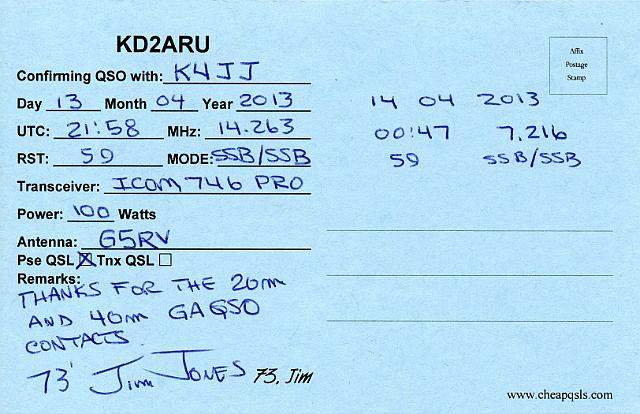 KD2ARU
Confirming QSO with: K4JJ
Day 13 Month 04 Year 2013
UTC: 21:58 MHz: 14.263
RST: 59 MODE: SSB/SSB
Transceiver: ICOM 746 PRO
Power: 100 Watts
Antenna: G5RV
Pse QSL ☒ Tnx QSL ☐
Remarks:
THANKS FOR THE 20m
AND 40m GAQSO
CONTACTS.
73' Jim JONES 73, Jim
Affix
Postage
Stamp
14 04 2013
00:47 7.216
59 SSB/SSB
www.cheapqsls.com